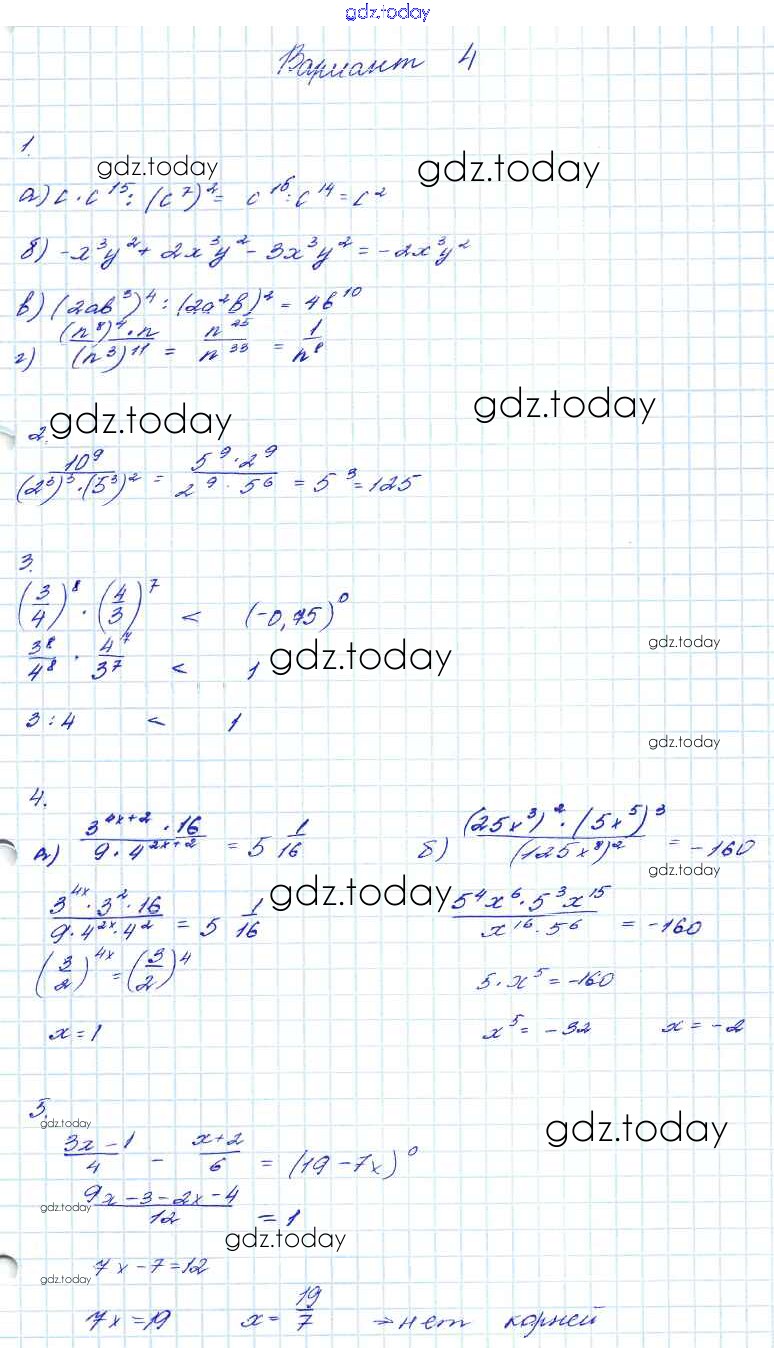 gdz.today
Вариант 4
1.
gdz.today gdz.today
а) c · c^15 : (c^7)^2 = c^16 : c^14 = c^2
б) -x^3y^2 + 2x^3y^2 - 3x^3y^2 = -2x^3y^2
в) (2ab^3)^4 : (2a^2b)^2 = 4b^10
г) (n^8)^4 · n / (n^3)^11 = n^25 / n^33 = 1 / n^8
gdz.today gdz.today
2.
10^9 / (2^3)^3 · (5^3)^2 = 5^9 · 2^9 / 2^9 · 5^6 = 5^3 = 125
3.
(3/4)^8 · (4/3)^7 < (-0,75)^0
3^8/4^8 · 4^7/3^7 < 1
gdz.today gdz.today
3 : 4 < 1
gdz.today
4.
а) 3^(4x+2) · 16 / 9 · 4^(2x+2) = 5 1/16
б) (25x^3)^2 · (5x^5)^3 / (125x^8)^2 = -160
gdz.today
gdz.today
3^4x · 3^2 · 16 / 9 · 4^2x · 4^2 = 5 1/16
5^4x^6 · 5^3x^15 / x^16 · 5^6 = -160
(3/2)^4x = (3/2)^4
5 · x^5 = -160
x = 1
x^5 = -32 x = -2
5.
gdz.today gdz.today
3x - 1 / 4 - x + 2 / 6 = (19 - 7x)^0
9x - 3 - 2x - 4 / 12 = 1
gdz.today
gdz.today
7x - 7 = 12
gdz.today
7x = 19 x = 19/7 → нет корней